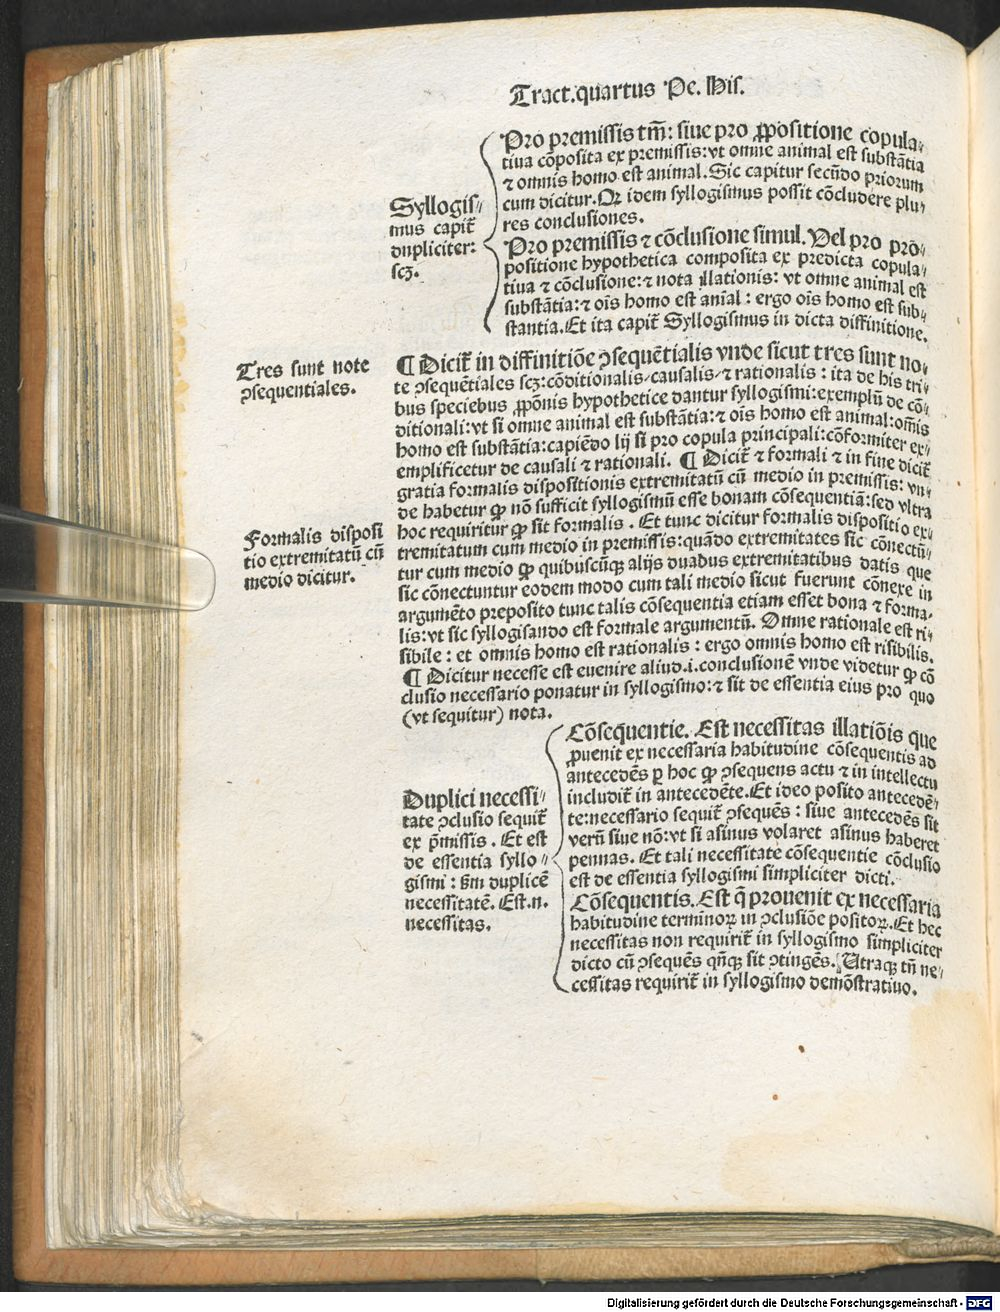 Tract.quartus Pe. His.
Syllogis⸗
mus capit᷑
dupliciter:
scꝫ.
Pro premissis tm̄: siue pro ꝓpositione copula⸗
tiua cōposita ex premissis:vt omne animal est substātia
⁊ omnis homo est animal.Sic capitur secūdo priorum
cum dicitur.Qꝛ idem syllogismus possit cōcludere plu⸗
res conclusiones.
Pro premissis ⁊ cōclusione simul. Vel pro pro⸗
positione hypothetica composita ex predicta copula⸗
tiua ⁊ cōclusione:⁊ nota illationis: vt omne animal est
substātia:⁊ oīs homo est anīal : ergo oīs homo est sub⸗
stantia.Et ita capit᷑ Syllogismus in dicta diffinitione.
Tres sunt note
ꝯsequentiales.
¶ Dicit᷑ in diffinitiōe ꝯsequētialis vnde sicut tres sunt no⸗
te ꝯsequētiales scꝫ:cōditionalis/causalis/⁊ rationalis : ita de his tri⸗
bus speciebus ꝓpōnis hypothetice dantur syllogismi:exemplū de cō⸗
ditionali:vt si omne animal est substātia:⁊ oīs homo est animal:om̄is
homo est substātia:capiēdo lij si pro copula principali:cōformiter ex⸗
emplificetur de causali ⁊ rationali. ¶ Dicit᷑ ⁊ formali ⁊ in fine dicit᷑
gratia formalis dispositionis extremitatū cū medio in premissis: vn⸗
de habetur ꝙ nō sufficit syllogismū esse bonam cōsequentiā:sed vltra
hoc requiritur ꝙ sit formalis . Et tunc dicitur formalis dispositio ex⸗
tremitatum cum medio in premissis:quādo extremitates sic cōnectū⸗
tur cum medio ꝙ quibuscūqꝫ alijs duabus extremitatibus datis que
sic cōnectuntur eodem modo cum tali medio sicut fuerunt cōnexe in
argumēto preposito tunc talis cōsequentia etiam esset bona ⁊ forma⸗
lis:vt sic syllogisando est formale argumentū. Omne rationale est ri⸗
sibile : et omnis homo est rationalis : ergo omnis homo est risibilis.
Formalis disposi
tio extremitatū cū
medio dicitur.
¶ Dicitur necesse est euenire aliud.i.conclusionē vnde videtur ꝙ cō
clusio necessario ponatur in syllogismo:⁊ sit de essentia eius pro quo
(vt sequitur) nota.
Duplici necessi⸗
tate ꝯclusio sequit᷑
ex p̄missis . Et est
de essentia syllo⸗
gismi : sm̄ duplicē
necessitatē. Est.n.
necessitas.
Cōseq̄uentie. Est necessitas illatiōis que
ꝓuenit ex necessaria habitudine cōsequentis ad
antecedēs ꝑ hoc ꝙ ꝯsequens actu ⁊ in intellectu
includit᷑ in antecedēte.Et ideo posito antecedē⸗
te:necessario sequit᷑ ꝯsequēs : siue antecedēs sit
verū siue nō:vt si asinus volaret asinus haberet
pennas. Et tali necessitate cōsequentie cōclusio
est de essentia syllogismi simpliciter dicti.
Cōsequentis. Est q̄ prouenit ex necessaria
habitudine terminoꝝ in ꝯclusiōe positoꝝ.Et hec
necessitas non requirit᷑ in syllogismo simpliciter
dicto cū ꝯsequēs qn̄qꝫ sit ꝯtingēs. Utraqꝫ tn̄ ne⸗
cessitas requirit᷑ in syllogismo demōstratiuo.
Digitalisierung gefördert durch die Deutsche Forschungsgemeinschaft - DFG